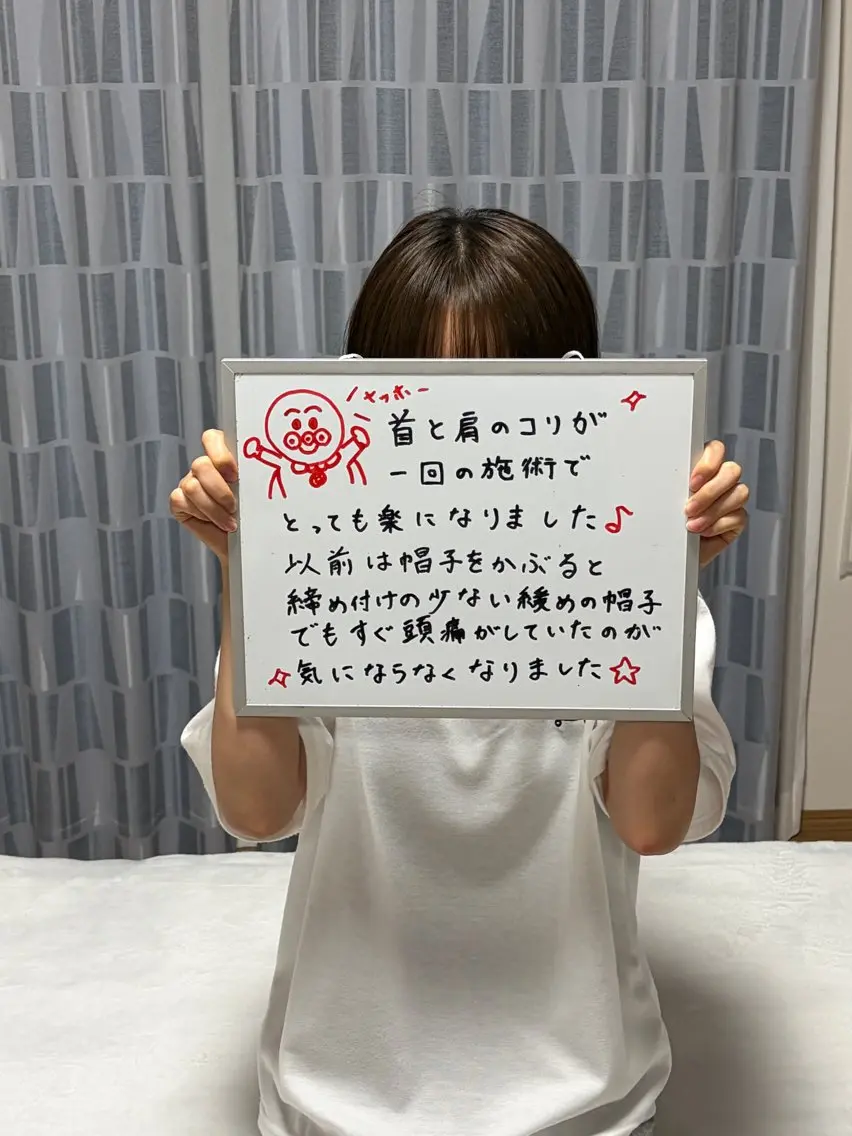 ヤッホー
首と肩のコリが
一回の施術で
とっても楽になりました♪
以前は帽子をかぶると
締め付けの少ない緩めの帽子
でもすぐ頭痛がしていたのが
気にならなくなりました☆